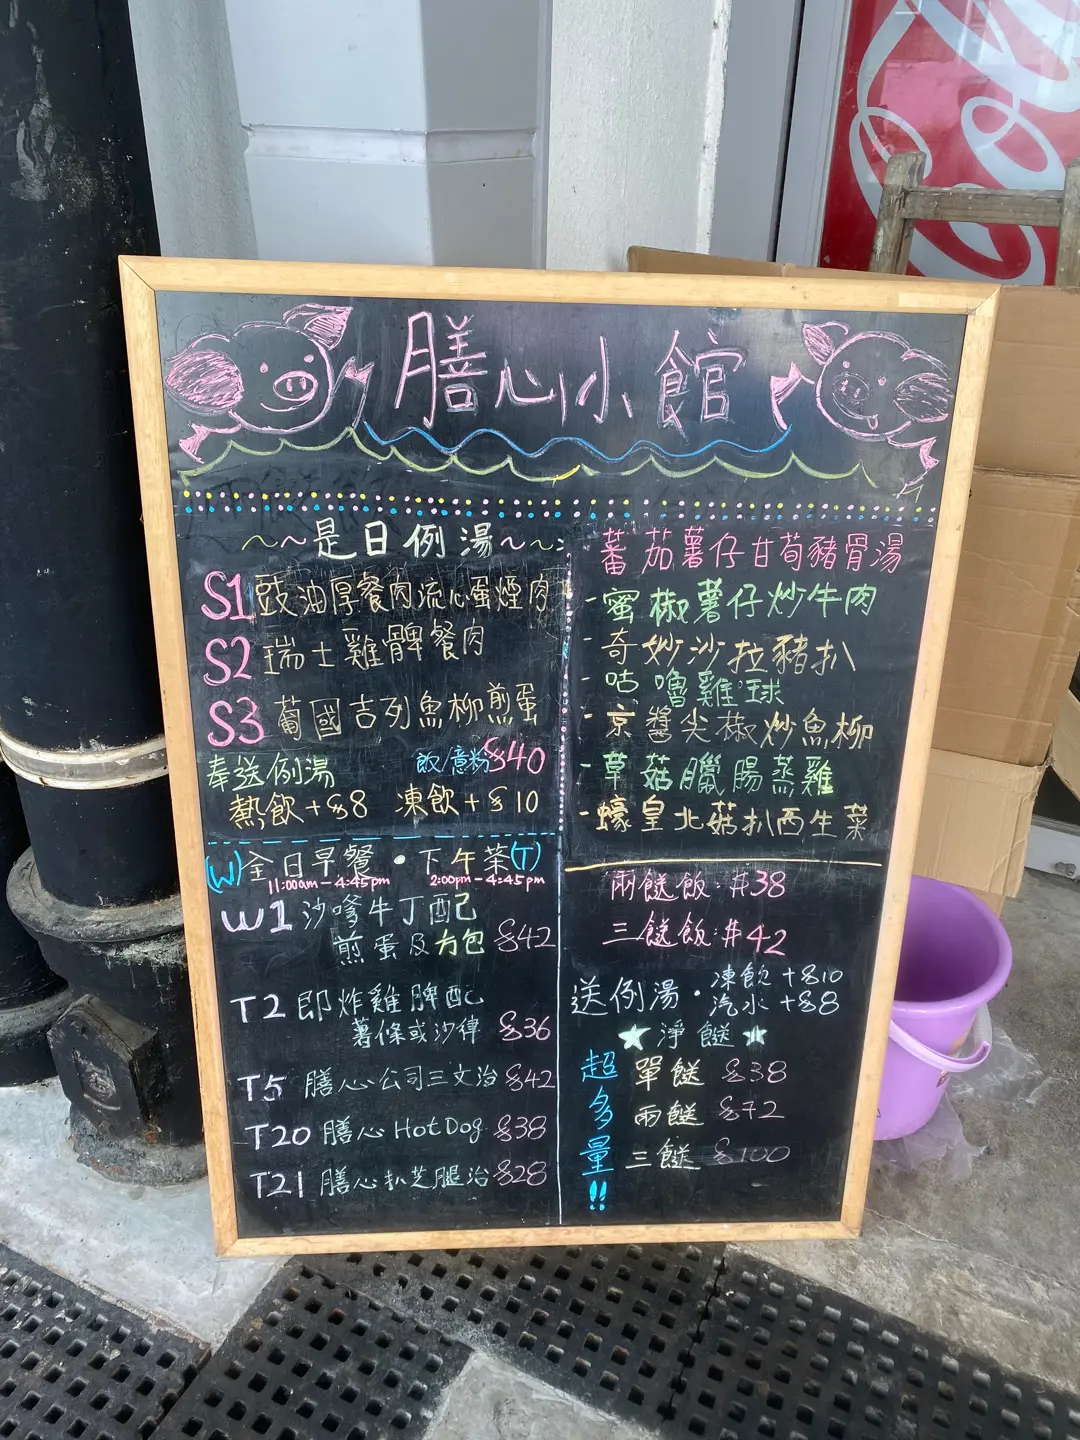 膳心小館
~~是日例湯~~:
蕃茄薯仔甘荀豬骨湯
S1 豉油厚餐肉流心蛋煙肉
S2 瑞士雞髀餐肉
S3 葡國吉列魚柳煎蛋
飯/意粉 $40
奉送例湯
熱飲+$8 凍飲+$10
-蜜椒薯仔炒牛肉
-奇妙沙拉豬扒
-咕嚕雞球
-京醬尖椒炒魚柳
-草菇臘腸蒸雞
-蠔皇北菇扒西生菜
(W)全日早餐・下午茶(T)
11:00am-4:45pm 2:00pm-4:45pm
W1 沙嗲牛丁配
煎蛋及方包 $42
T2 即炸雞脾配
薯條或沙律 $36
T5 膳心公司三文治 $42
T20 膳心 Hot Dog $38
T21 膳心扒芝腿治 $28
兩餸飯:#38
三餸飯:#42
送例湯・凍飲+$10
汽水+$8
★淨餸★
超多量!!
單餸 $38
兩餸 $72
三餸 $100